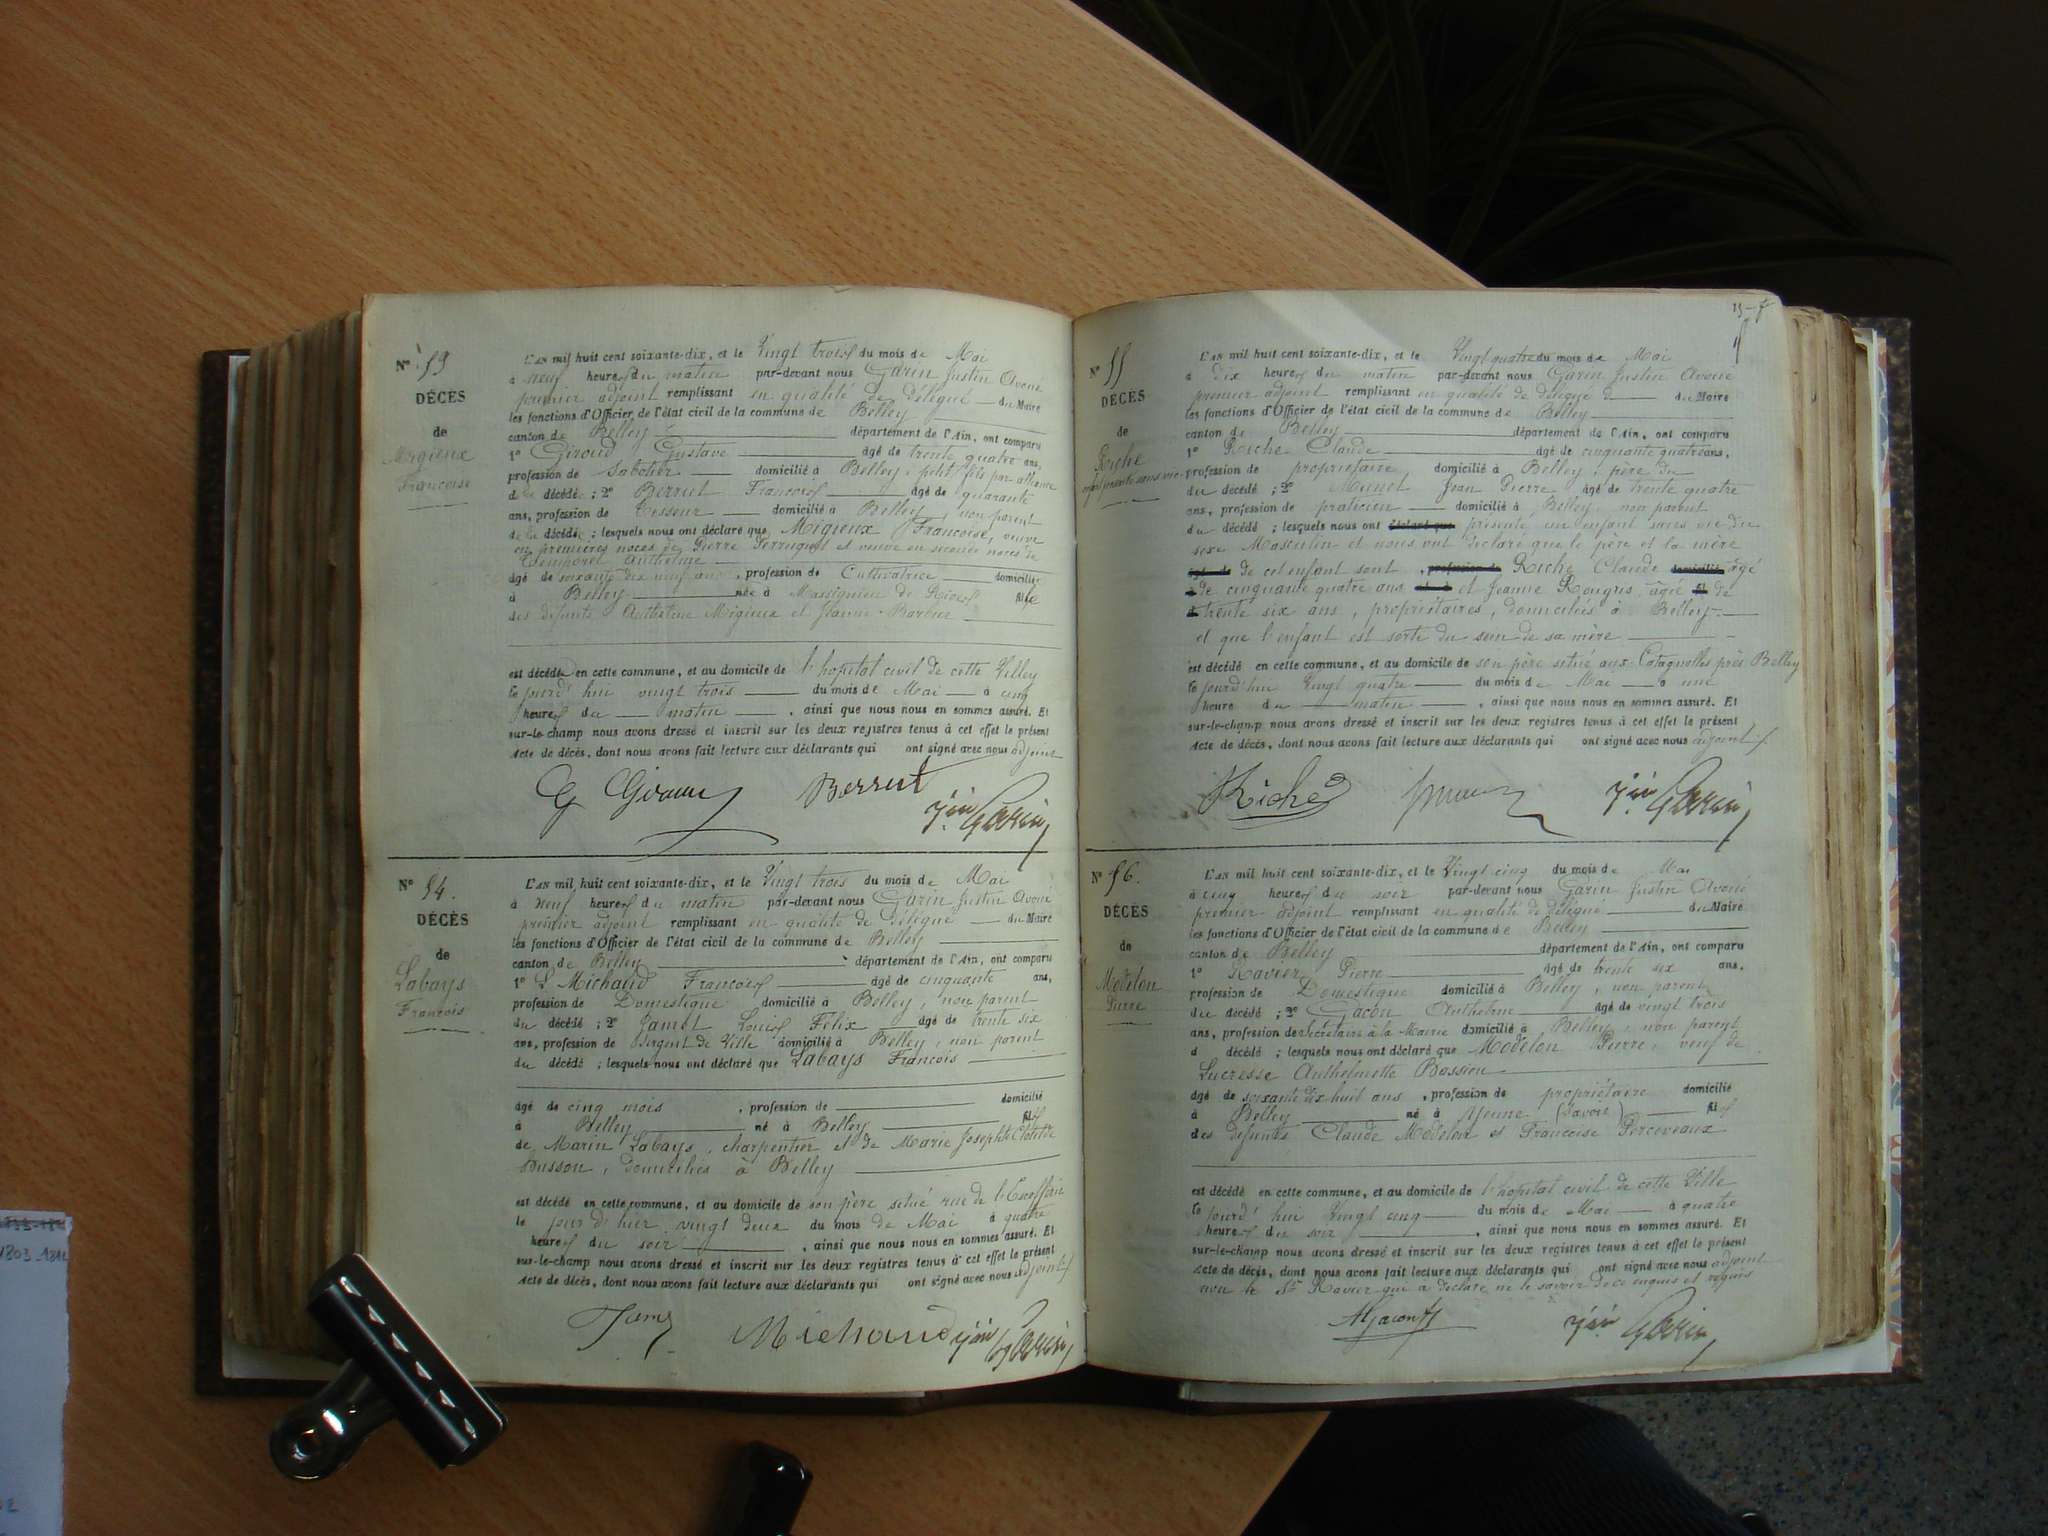 Nº 53
DÉCÈS
de
Migieux
Françoise
L'AN mil huit cent soixante-dix, et le Vingt trois du mois de Mai
à neuf heures du matin par-devant nous Garin Justin Avoué
premier adjoint remplissant en qualité de délégué du Maire
les fonctions d'Officier de l'état civil de la commune de Belley
canton de Belley département de l'Ain, ont comparu
1º Giroud Gustave âgé de trente quatre ans,
profession de Sabotier domicilié à Belley, petit fils par alliance
de la décédée ; 2º Berrut François âgé de quarante
ans, profession de Tisseur domicilié à Belley, non parent
de la décédée ; lesquels nous ont déclaré que Migieux Françoise, veuve
en premières noces de Pierre et veuve en seconde noces de
Anthelme
âgé de soixante dix neuf ans, profession de Cultivatrice domiciliée
à Belley née à Massignieu de Rives fille
des défunts Anthelme Migieux et Jeanne Barbier
est décédée en cette commune, et au domicile de l'hopital civil de cette Ville
le jourd'hui vingt trois du mois de Mai à cinq
heures du matin, ainsi que nous nous en sommes assuré. Et
sur-le-champ nous avons dressé et inscrit sur les deux registres tenus à cet effet le présent
Acte de décès, dont nous avons fait lecture aux déclarants qui ont signé avec nous adjoint
G Giroud Berrut Jin Garin
Nº 54.
DÉCÈS
de
Labays
François
L'AN mil huit cent soixante-dix, et le Vingt trois du mois de Mai
à neuf heures du matin par-devant nous Garin Justin Avoué
premier adjoint remplissant en qualité de délégué du Maire
les fonctions d'Officier de l'état civil de la commune de Belley
canton de Belley département de l'Ain, ont comparu
1º Michaud François âgé de cinquante ans,
profession de Domestique domicilié à Belley, non parent
du décédé ; 2º Jamet Louis Félix âgé de trente six
ans, profession de Sergent de Ville domicilié à Belley, non parent
du décédé ; lesquels nous ont déclaré que Labays François
âgé de cinq mois, profession de domicilié
à Belley né à Belley fils
de Marin Labays, charpentier et de Marie Josephte Clotilde
Husson, domiciliés à Belley
est décédé en cette commune, et au domicile de son père situé rue de
le jour d'hier vingt deux du mois de Mai à quatre
heures du soir, ainsi que nous nous en sommes assuré. Et
sur-le-champ nous avons dressé et inscrit sur les deux registres tenus à cet effet le présent
Acte de décès, dont nous avons fait lecture aux déclarants qui ont signé avec nous adjoint
Jamet Michaud Jin Garin
Nº 55
DÉCÈS
de
Riche
enft présenté sans vie
L'AN mil huit cent soixante-dix, et le Vingt quatre du mois de Mai
à dix heures du matin par-devant nous Garin Justin Avoué
premier adjoint remplissant en qualité de délégué du Maire
les fonctions d'Officier de l'état civil de la commune de Belley
canton de Belley département de l'Ain, ont comparu
1º Riche Claude âgé de cinquante quatre ans,
profession de propriétaire domicilié à Belley, père du
du décédé ; 2º Jean Pierre âgé de trente quatre
ans, profession de praticien domicilié à Belley, non parent
du décédé ; lesquels nous ont déclaré que présenté un enfant sans vie du
sexe Masculin et nous ont déclaré que le père et la mère
de cet enfant sont Riche Claude âgé
de cinquante quatre ans et Jeanne Rougris, âgée de
trente six ans, propriétaires, domiciliés à Belley
et que l'enfant est sorti du sein de sa mère
est décédé en cette commune, et au domicile de son père situé aux près Belley
le jourd'hui Vingt quatre du mois de Mai à une
heure du matin, ainsi que nous nous en sommes assuré. Et
sur-le-champ nous avons dressé et inscrit sur les deux registres tenus à cet effet le présent
Acte de décès, dont nous avons fait lecture aux déclarants qui ont signé avec nous adjoint
Riche Jin Garin
Nº 56.
DÉCÈS
de
Modelon
Pierre
L'AN mil huit cent soixante-dix, et le Vingt cinq du mois de Mai
à cinq heures du soir par-devant nous Garin Justin Avoué
premier adjoint remplissant en qualité de délégué du Maire
les fonctions d'Officier de l'état civil de la commune de Belley
canton de Belley département de l'Ain, ont comparu
1º Ravier Pierre âgé de trente six ans,
profession de Domestique domicilié à Belley, non parent
du décédé ; 2º Gacon Anthelme âgé de vingt trois
ans, profession de Secrétaire à la Mairie domicilié à Belley, non parent
d décédé ; lesquels nous ont déclaré que Modelon Pierre, veuf de
Lucresse Anthelmette Bossion
âgé de soixante dix huit ans, profession de propriétaire domicilié
à Belley né à Yenne (Savoie) fils
des défunts Claude Modelon et Françoise Perceveaux
est décédé en cette commune, et au domicile de l'hopital civil de cette Ville
le jourd'hui Vingt cinq du mois de Mai à quatre
heures du soir, ainsi que nous nous en sommes assuré. Et
sur-le-champ nous avons dressé et inscrit sur les deux registres tenus à cet effet le présent
Acte de décès, dont nous avons fait lecture aux déclarants qui ont signé avec nous adjoint
non le Sr Ravier qui a déclaré ne le savoir de ce enquis et requis
AGacon Jin Garin
1803